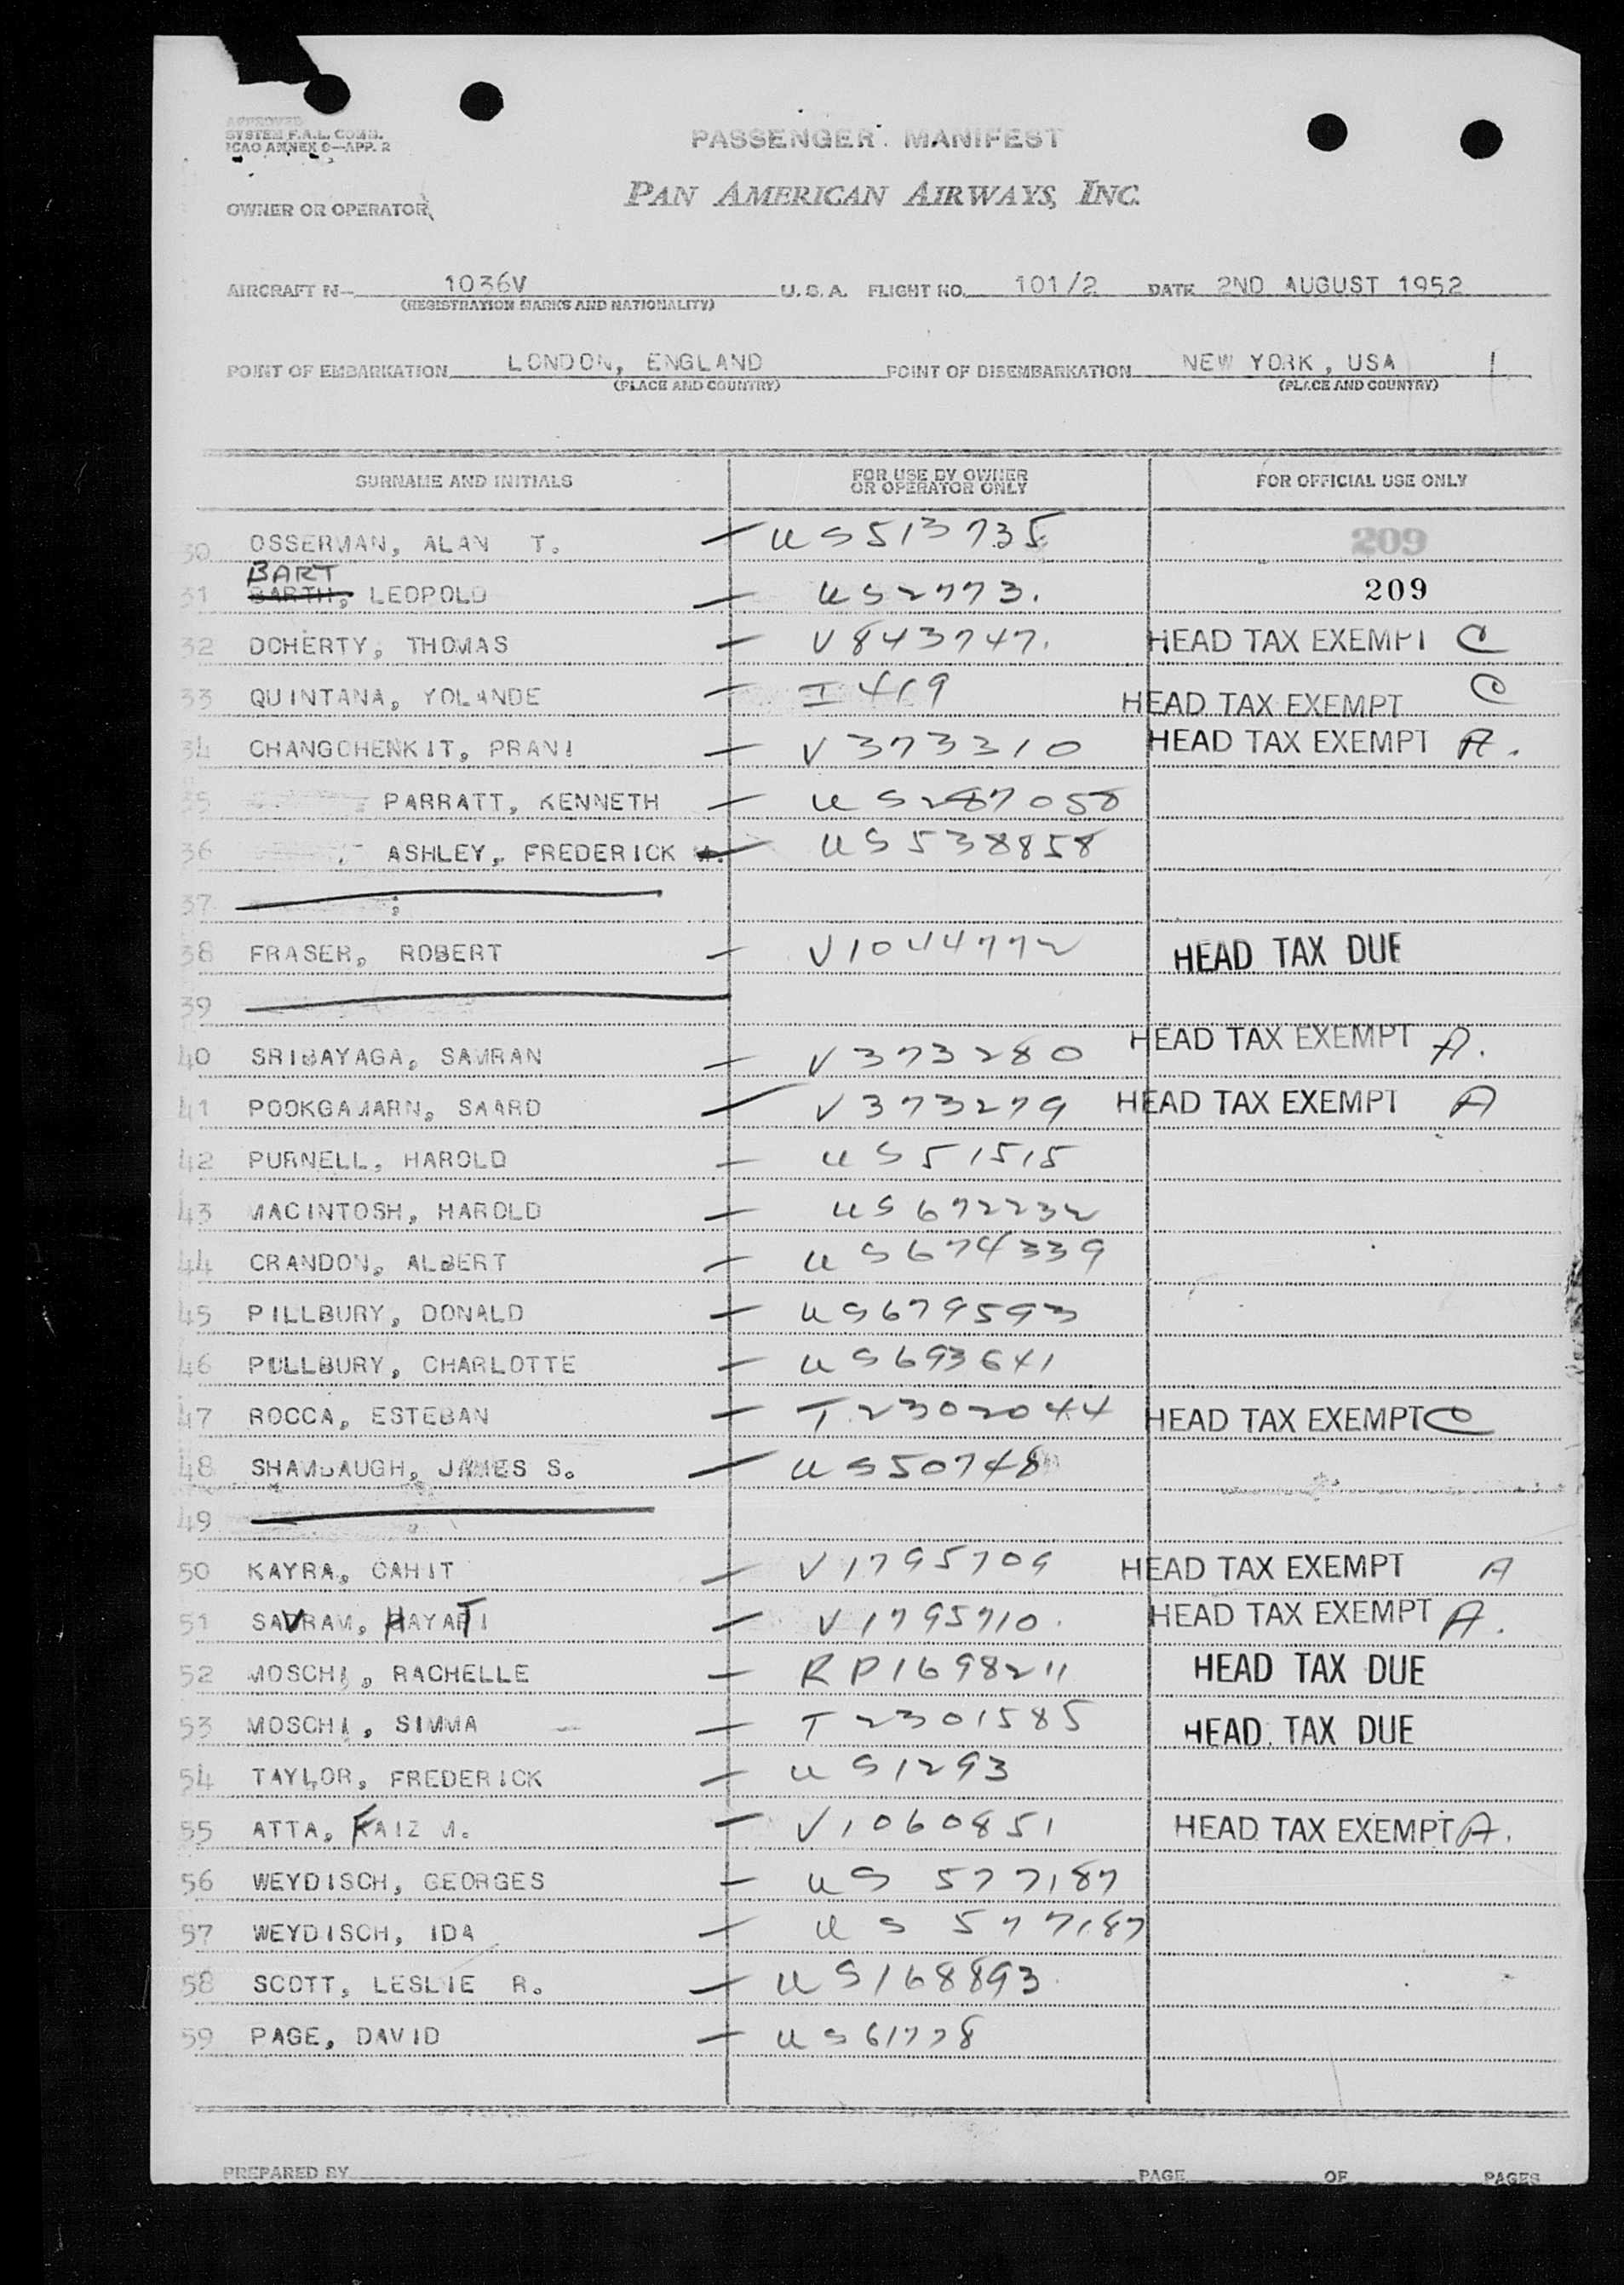 APPROVED
SYSTEM F.A.L. COMB.
ICAO ANNEX 9—APP. 2
PASSENGER MANIFEST
PAN AMERICAN AIRWAYS, INC.
OWNER OR OPERATOR
AIRCRAFT N— 1036V U.S.A. FLIGHT NO. 101/2 DATE 2ND AUGUST 1952
(REGISTRATION MARKS AND NATIONALITY)
POINT OF EMBARKATION LONDON, ENGLAND POINT OF DISEMBARKATION NEW YORK, USA
(PLACE AND COUNTRY) (PLACE AND COUNTRY)
SURNAME AND INITIALS FOR USE BY OWNER OR OPERATOR ONLY FOR OFFICIAL USE ONLY
30 OSSERMAN, ALAN T. — US513735 209
BART
31 BARTH, LEOPOLD — US2773. 209
32 DOHERTY, THOMAS — V843747. HEAD TAX EXEMPT C
33 QUINTANA, YOLANDE — I419 HEAD TAX EXEMPT C
34 CHANGCHENKIT, PRANI — V373310 HEAD TAX EXEMPT A.
35 PARRATT, KENNETH — US287058
36 ASHLEY, FREDERICK — US538858
37
38 FRASER, ROBERT — V1044772 HEAD TAX DUE
39
40 SRIBAYAGA, SAMRAN — V373280 HEAD TAX EXEMPT A.
41 POOKGAMARN, SAARD — V373279 HEAD TAX EXEMPT A
42 PURNELL, HAROLD — US51515
43 MACINTOSH, HAROLD — US672232
44 CRANDON, ALBERT — US674339
45 PILLBURY, DONALD — US679593
46 PULLBURY, CHARLOTTE — US693641
47 ROCCA, ESTEBAN — T2302044 HEAD TAX EXEMPT C
48 SHAMBAUGH, JAMES S. — US50748
49
50 KAYRA, CAHIT — V1795709 HEAD TAX EXEMPT A
51 SAVRAM, HAYATI — V1795710. HEAD TAX EXEMPT A.
52 MOSCHI, RACHELLE — RP1698211 HEAD TAX DUE
53 MOSCHI, SIMMA — T2301585 HEAD TAX DUE
54 TAYLOR, FREDERICK — US1293
55 ATTA, FAIZ M. — V1060851 HEAD TAX EXEMPT A.
56 WEYDISCH, GEORGES — US 577187
57 WEYDISCH, IDA — US 577187
58 SCOTT, LESLIE R. — US168893
59 PAGE, DAVID — US61778
PREPARED BY PAGE OF PAGES